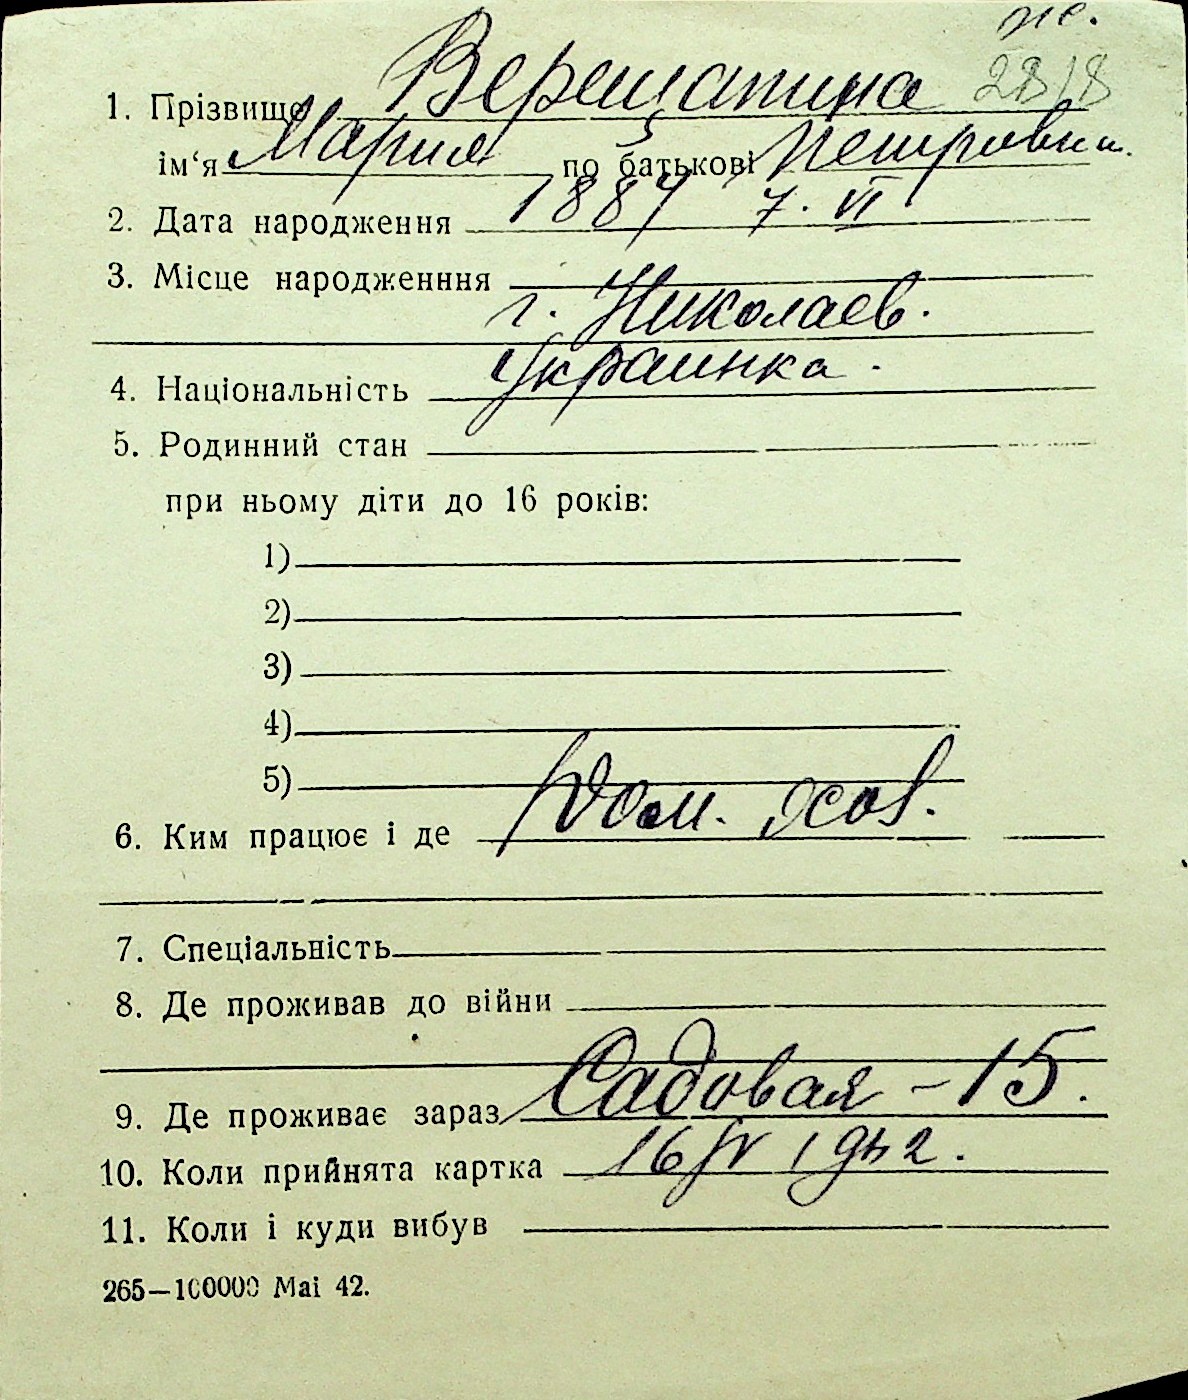 ж.
28/8
1. Прізвище Верещагина
ім‘я Мария по батькові Петровна.
2. Дата народження 1887 7. VI
3. Місце народженння
г. Николаев.
4. Національність Украинка.
5. Родинний стан
при ньому діти до 16 років:
1)
2)
3)
4)
5)
6. Ким працює і де Дом. хоз.
7. Спеціальність
8. Де проживав до війни
9. Де проживає зараз Садовая - 15.
10. Коли прийнята картка 16 IV 1942.
11. Коли і куди вибув
265—100000 Mai 42.